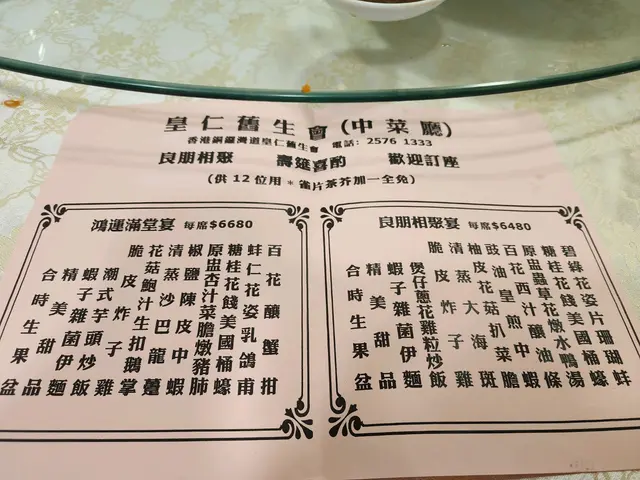 皇仁舊生會(中菜廳)
香港銅鑼灣道皇仁舊生會 電話: 2576 1333
良朋相聚 壽筵喜酌 歡迎訂座
(供12位用*雀片茶芥加一全免)
鴻運滿堂宴 每席$6680
百花釀蟹拑
蚌仁花姿乳鴿甫
糖桂花餞美國桶蠔
原盅杏汁菜膽燉豬肺
椒鹽陳皮中蝦
清蒸沙巴龍躉
花菇鮑汁生扣鵝掌
脆皮炸子雞
潮式芋頭炒飯
蝦子雜菌伊麵
精美甜品
合時生果盆
良朋相聚宴 每席$6480
碧綠花姿片珊瑚蚌
糖桂花餞美國桶蠔
原盅蟲草花燉水鴨湯
百花西汁釀油條
豉油皇煎中蝦
柚皮花菇扒菜膽
清蒸大海斑
脆皮炸子雞
煲仔蔥花雞粒炒飯
蝦子雜菌伊麵
精美甜品
合時生果盆